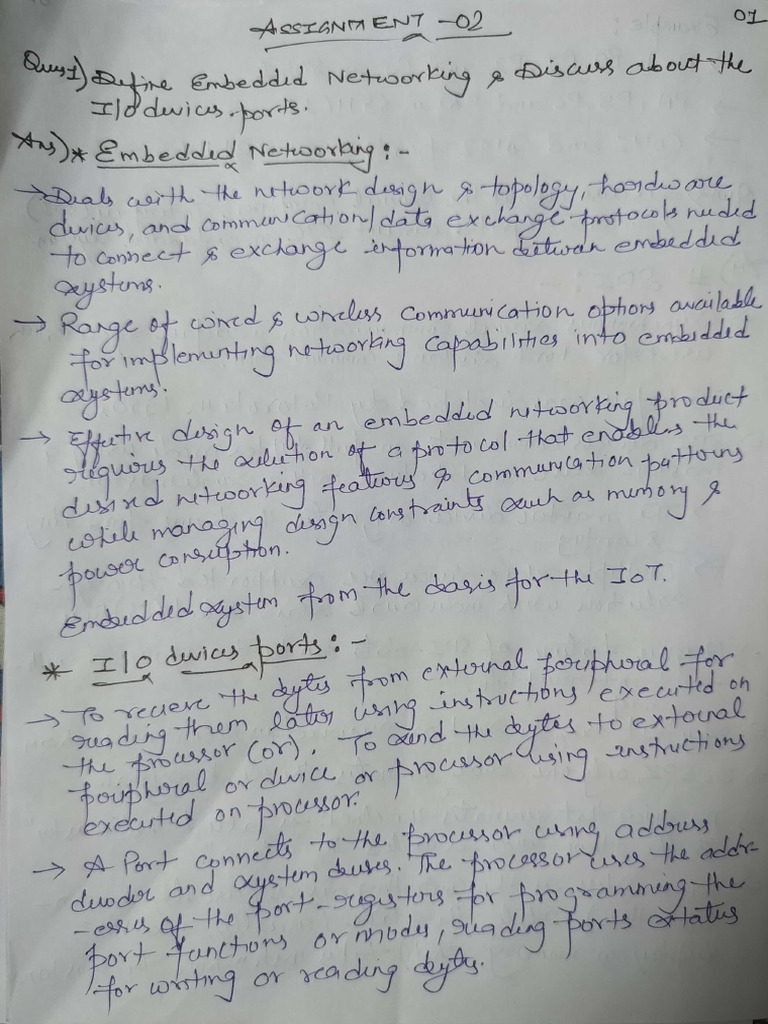 ASSIGNMENT -02
01
Ques1) Define Embedded Networking & Discuss about the
I/O devices ports.
Ans) * Embedded Networking :-
→ Deals with the network design & topology, hardware
devices, and communication/data exchange protocols needed
to connect & exchange information between embedded
systems.
→ Range of wired & wireless communication options available
for implementing networking capabilities into embedded
systems.
→ Effective design of an embedded networking product
requires the selection of a protocol that enables the
desired networking features & communication patterns
while managing design constraints such as memory &
power consuption.
Embedded system from the basis for the IoT.
* I/O devices ports :-
→ To recieve the bytes from external peripheral for
reading them later using instructions executed on
the processor (or). To send the bytes to external
peripheral or device or processor using instructions
executed on processor.
→ A Port connects to the processor using address
decoder and system buses. The processor uses the addr-
-esses of the port-registers for programming the
port functions or modes, reading ports status
for writing or reading bytes.